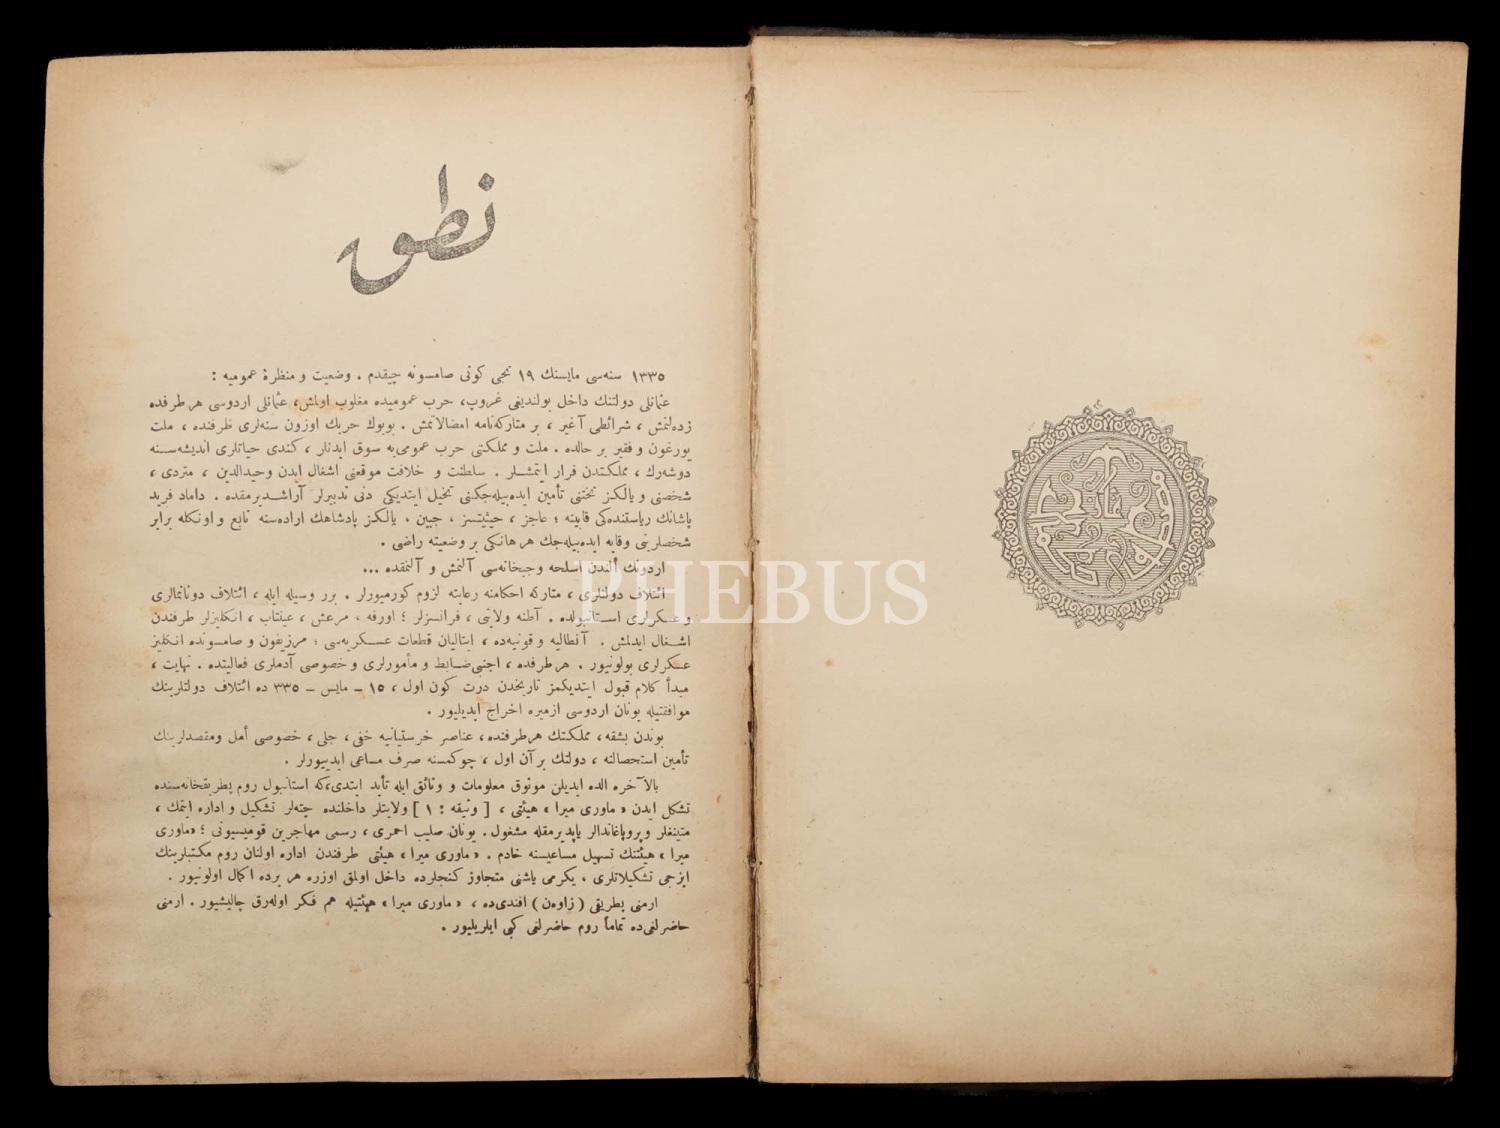 نطق
١٣٣٥ سنه‌سی مایسنك ١٩ نجی كونی صامسونه چیقدم . وضعیت و منظرۀ عمومیه :
عثمانلی دولتنك داخل بولندیغی غروپ، حرب عمومیده مغلوب اولمش، عثمانلی اردوسی هر طرفده
زده‌لنمش ، شرائطی آغیر ، بر متاركه‌نامه امضالانمش . بویوك حربك اوزون سنه‌لری ظرفنده ، ملت
یورغون و فقیر بر حالده . ملت و مملكتی حرب عمومی‌یه سوق ایدنلر ، كندی حیاتلری اندیشه‌سنه
دوشه‌رك ، مملكتدن فرار ایتمشلر . سلطنت و خلافت موقعنی اشغال ایدن وحیدالدین ، متردی ،
شخصنی و یالكز تختنی تأمین ایده‌بیله‌جكنی تخیل ایتدیكی دنی تدبیرلر آراشدیرمقده . داماد فرید
پاشانك ریاستنده‌كی قابینه ؛ عاجز ، حیثیتسز ، جبین ، یالكز پادشاهك اراده‌سنه تابع و اونكله برابر
شخصلرینی وقایه ایده‌بیله‌جك هر هانكی بر وضعیته راضی .
اردونك ألندن اسلحه و جبخانه‌سی آلنمش و آلنمقده ...
ائتلاف دولتلری ، متاركه احكامنه رعایته لزوم كورمیورلر . برر وسیله ایله ، ائتلاف دونانمالری
و عسكرلری استانبولده . آطنه ولایتی ، فرانسزلر ؛ اورفه ، مرعش ، عینتاب ، انكلیزلر طرفندن
اشغال ایدلمش . آنطالیه و قونیه‌ده ، ایتالیان قطعات عسكریه‌سی ؛ مرزیفون و صامسونده انكلیز
عسكرلری بولونیور . هر طرفده ، اجنبی ضابط و مأمورلری و خصوصی آدملری فعالیتده . نهایت ،
مبدأ كلام قبول ایتدیكمز تاریخدن درت كون اول ، ١٥ – مایس – ٣٣٥ ده ائتلاف دولتلرینك
موافقتیله یونان اردوسی ازمیره اخراج ایدیلیور .
بوندن بشقه ، مملكتك هر طرفنده ، عناصر خرستیانیه خفی ، جلی ، خصوصی أمل ومقصدلرینك
تأمین استحصالنه ، دولتك بر آن اول ، چوكمسنه صرف مساعی ایدییورلر .
بالآخره الده ایدیلن موثوق معلومات و وثائق ایله تأید ایتدی‌كه استانبول روم پطریقخانه‌سنده
تشكل ایدن « ماوری میرا » هیئتی ، [ وثیقه : ١ ] ولایتلر داخلنده چته‌لر تشكیل و اداره ایتمك ،
متینغلر و پروپاغاندالر یاپدیرمقله مشغول . یونان صلیب احمری ، رسمی مهاجرین قومیسیونی ؛ «ماوری
میرا » هیئتنك تسهیل مساعیسنه خادم . « ماوری میرا » هیئتی طرفندن اداره اولنان روم مكتبلرینك
ایزجی تشكیلاتلری ، یكرمی یاشنی متجاوز كنجلرده داخل اولمق اوزره هر یرده اكمال اولونیور .
ارمنی پطریقی ( زاوه‌ن ) افندی‌ده ، « ماوری میرا » هیئتیله هم فكر اوله‌رق چالیشیور . ارمنی
حاضرلغی‌ده تماماً روم حاضرلغی كبی ایلریلیور .
PHEBUS